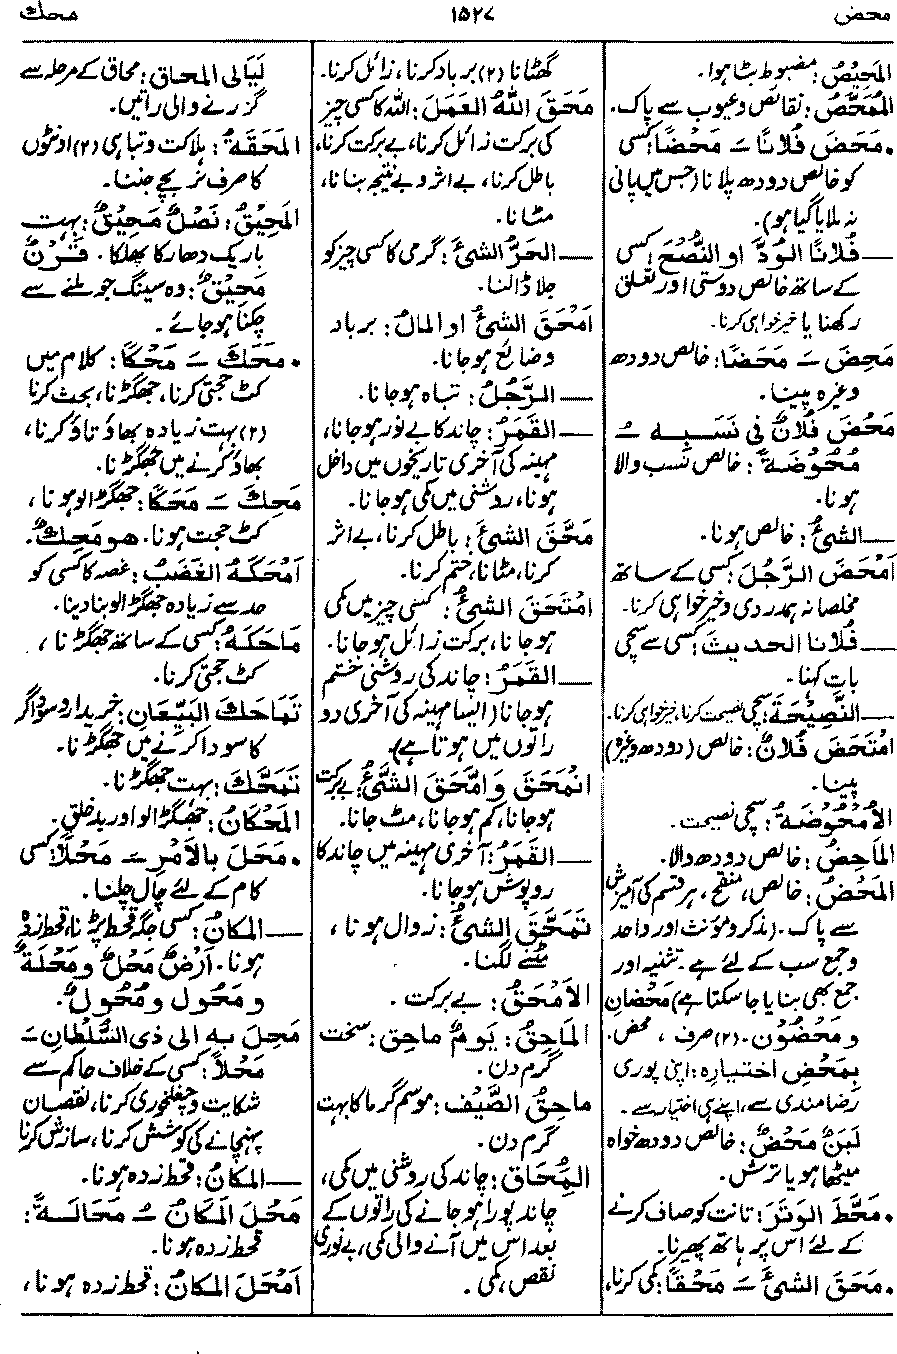 محض ۱۵۲۷ محك
المَحِيْصُ: مضبوط بٹا ہوا۔
المُمَحَّصُ: نقائص وعیوب سے پاک۔
• مَحَضَ فُلَانًا ـَ مَحْضًا: کسی
کو خالص دودھ پلانا (جس میں پانی
نہ ملایا گیا ہو)۔
ــــ فُلَانًا الوُدَّ او النُّصْحَ: کسی
کے ساتھ خالص دوستی اور تعلق
رکھنا یا خیر خواہی کرنا۔
مَحِضَ ـَ مَحَضًا: خالص دودھ
وغیرہ پینا۔
مَحُضَ فُلَانٌ فِي نَسَبِه ـُ
مُحُوْضَةً: خالص نسب والا
ہونا۔
ــــ الشيءُ: خالص ہونا۔
اَمْحَضَ الرَّجُلَ: کسی کے ساتھ
مخلصانہ ہمدردی وخیر خواہی کرنا۔
ــــ فُلَانًا الحديثَ: کسی سے سچی
بات کہنا۔
ــــ النَّصِيْحَةَ: سچی نصیحت کرنا، خیر خواہی کرنا۔
امْتَحَضَ فُلَانٌ: خالص (دودھ وغیرہ)
پینا۔
الأُمْحُوْضَةُ: سچی نصیحت۔
المَاحِضُ: خالص دودھ والا۔
المَحْضُ: خالص، منقح، ہر قسم کی آمیزش
سے پاک۔ (مذکر ومؤنث اور واحد
وجمع سب کے لئے ہے۔ تثنیہ اور
جمع بھی بنایا جا سکتا ہے) مَحْضَان
و مَحْضُوْن۔ (۲) صرف، محض۔
بِمَحْضِ اختیارِه: اپنی پوری
رضامندی سے، اپنے ہی اختیار سے۔
لَبَنٌ مَحْضٌ: خالص دودھ خواہ
میٹھا ہو یا ترش۔
• مَحَّطَ الوَتَرَ: تانت کو صاف کرنے
کے لئے اس پر ہاتھ پھیرنا۔
• مَحَقَ الشيءَ ـَ مَحْقًا: کمی کرنا،
گھٹانا (۲) برباد کرنا، زائل کرنا۔
مَحَقَ اللّٰهُ العَمَلَ: اللہ کا کسی چیز
کی برکت زائل کرنا، بے برکت کرنا،
باطل کرنا، بے اثر و بے نتیجہ بنانا،
مٹانا۔
ــــ الحَرُّ الشيءَ: گرمی کا کسی چیز کو
جلا ڈالنا۔
اَمْحَقَ الشيءُ او المالُ: برباد
وضائع ہو جانا۔
ــــ الرَّجُلُ: تباہ ہو جانا۔
ــــ القَمَرُ: چاند کا بے نور ہو جانا،
مہینہ کی آخری تاریخوں میں داخل
ہونا، روشنی میں کمی ہو جانا۔
مَحَّقَ الشيءَ: باطل کرنا، بے اثر
کرنا، مٹانا، ختم کرنا۔
امْتَحَقَ الشيءُ: کسی چیز میں کمی
ہو جانا، برکت زائل ہو جانا۔
ــــ القَمَرُ: چاند کی روشنی ختم
ہو جانا (ایسا مہینہ کی آخری دو
راتوں میں ہوتا ہے)۔
انْمَحَقَ وَامَّحَقَ الشَّيءُ: بے برکت
ہو جانا، کم ہو جانا، مٹ جانا۔
ــــ القَمَرُ: آخری مہینہ میں چاند کا
روپوش ہو جانا۔
تَمَحَّقَ الشيءُ: زوال ہونا،
مٹنے لگنا۔
الأَمْحَقُ: بے برکت۔
المَاحِقُ: يَومٌ ماحِق: سخت
گرم دن۔
ماحِقُ الصَّيْفِ: موسم گرما کا بہت
گرم دن۔
المُحَاق: چاند کی روشنی میں کمی،
چاند پورا ہو جانے کی راتوں کے
بعد اس میں آنے والی کمی، بے نوری
نقص، کمی۔
لَيَالى المحاق: محاق کے مرحلہ سے
گزرنے والی راتیں۔
المَحَقَةُ: ہلاکت وتباہی (۲) اونٹوں
کا صرف نر بچے جننا۔
المَحِيْقُ: نَصْلٌ مَحِيْقٌ: بہت
باریک دھار کا پھلکا۔ قَرْنٌ
مَحِيْقٌ: وہ سینگ جو ملنے سے
چکنا ہو جائے۔
• مَحَكَ ـَ مَحْكًا: کلام میں
کٹ حجتی کرنا، جھگڑنا، بحث کرنا
(۲) بہت زیادہ بھاؤ تاؤ کرنا،
بھاؤ کرنے میں جھگڑنا۔
مَحِكَ ـَ مَحَكًا: جھگڑالو ہونا،
کٹ حجت ہونا۔ هو مَحِكٌ۔
اَمْحَكَهُ الغَضَبُ: غصہ کا کسی کو
حد سے زیادہ جھگڑالو بنا دینا۔
مَاحَكَهُ: کسی کے ساتھ جھگڑنا،
کٹ حجتی کرنا۔
تَمَاحَكَ البَيِّعَانِ: خریدار و سوداگر
کا سودا کرنے میں جھگڑنا۔
تَمَحَّكَ: بہت جھگڑنا۔
المَحْكَانُ: جھگڑالو اور بدخلق۔
• مَحَلَ بِالأَمْرِ ـَ مَحْلًا: کسی
کام کے لئے چال چلنا۔
ــــ المكانُ: کسی جگہ قحط پڑنا، قحط زدہ
ہونا۔ اَرْضٌ مَحْلٌ ومَحْلَةٌ
و مَحُول ومُحُولٌ۔
مَحِلَ بِهِ الى ذِى السُّلْطَانِ ـَ
مَحْلًا: کسی کے خلاف حاکم سے
شکایت وچغلخوری کرنا، نقصان
پہنچانے کی کوشش کرنا، سازش کرنا
ــــ المكانُ: قحط زدہ ہونا۔
مَحُلَ المَكَانُ ـُ مَحَالَةً:
قحط زدہ ہونا۔
اَمْحَلَ المكانُ: قحط زدہ ہونا،